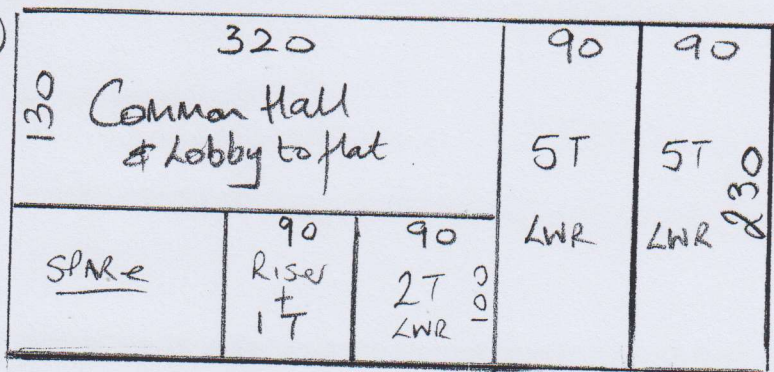 )
320
130
Common Hall
& Lobby to flat
90
5T
LWR
90
5T
LWR
230
SPARe
90
Riser
+
1T
90
2T
LWR
100